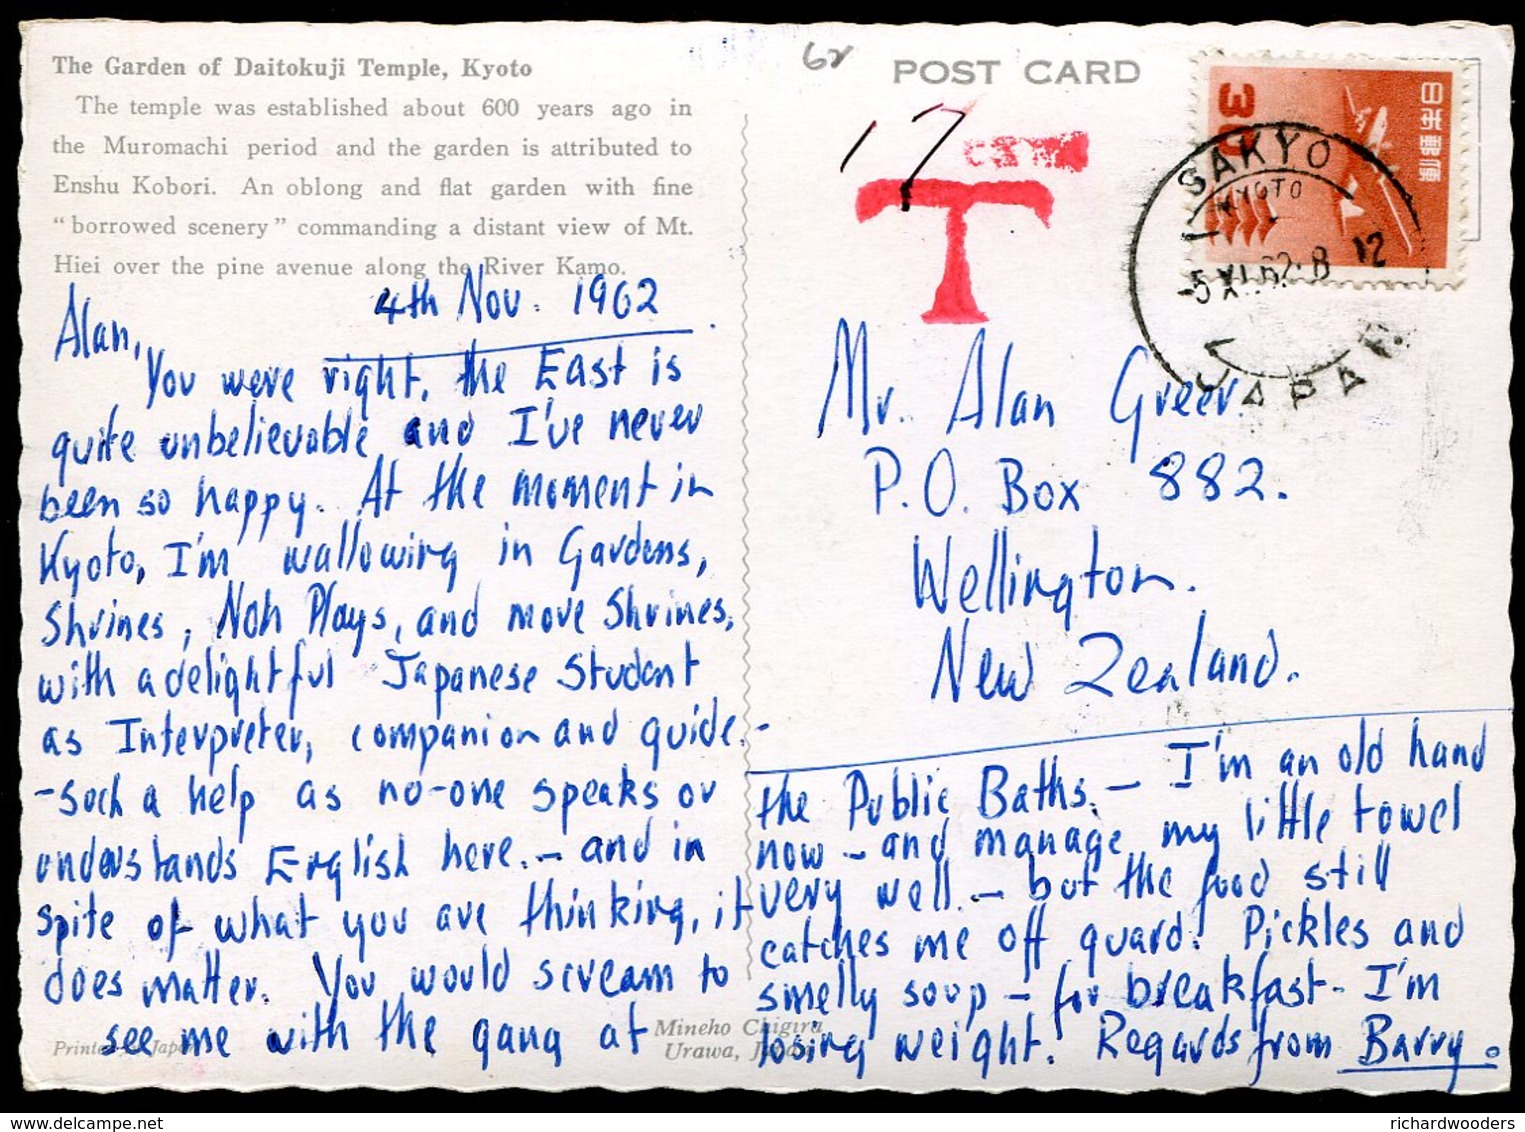 The Garden of Daitokuji Temple, Kyoto
The temple was established about 600 years ago in
the Muromachi period and the garden is attributed to
Enshu Kobori. An oblong and flat garden with fine
"borrowed scenery" commanding a distant view of Mt.
Hiei over the pine avenue along the River Kamo.
4th Nov. 1962
Alan,
You were right, the East is
quite unbelievable and I've never
been so happy. At the moment in
Kyoto, I'm wallowing in Gardens,
Shrines, Noh Plays, and more Shrines,
with a delightful Japanese Student
as Interpreter, companion and guide.-
-such a help as no-one speaks or
understands English here.- and in
spite of what you are thinking, it
does matter. You would scream to
see me with the gang at
Printed in Japan
Mineho Chigira
Urawa, Japan
62
POST CARD
17
T
30
日本郵便
SAKYO
KYOTO
5.XI.62.8-12
JAPAN
Mr. Alan Greer.
P.O. Box 882.
Wellington.
New Zealand.
the Public Baths.- I'm an old hand
now - and manage my little towel
very well.- but the food still
catches me off guard! Pickles and
smelly soup - for breakfast - I'm
losing weight! Regards from Barry.
richardwooders